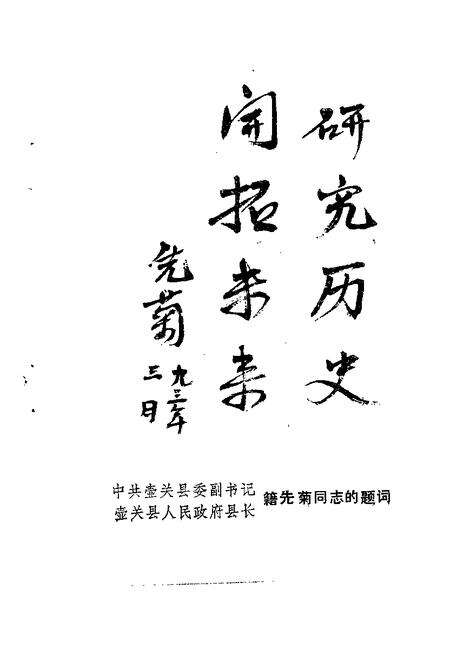 研究历史
开拓未来
先菊
九三年
三日
中共壶关县委副书记
壶关县人民政府县长
籍先菊同志的题词